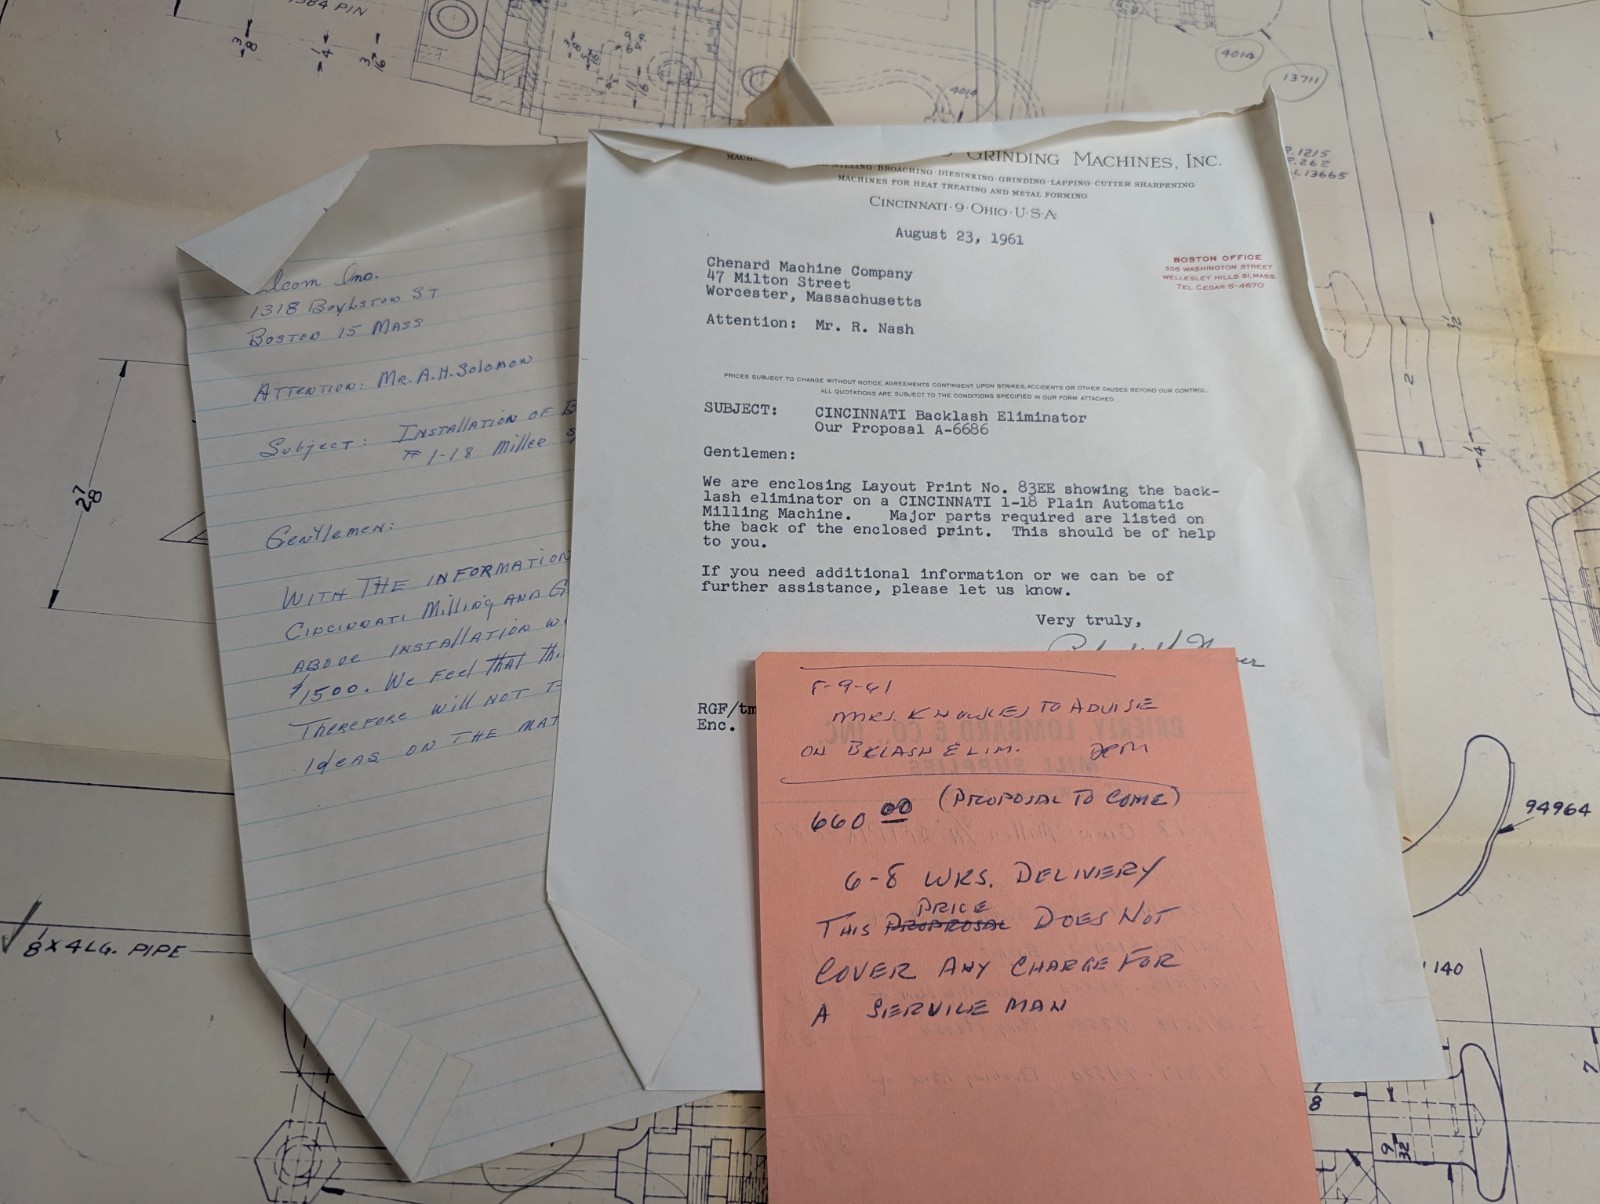 1384 PIN
3/8
1/4
3/16
4014
4014
13711
P. 1215
P. 262
L 13665
lcom Inc.
1318 Boylston ST
Boston 15 Mass
Attention: Mr. A.H. Solomon
Subject: Installation of B
# 1-18 Miller
Gentlemen:
With the information
Cincinnati Milling and G
above installation w
$1500. We feel that th
Therefore will not
ideas on the mat
Grinding Machines, Inc.
MILLING·BROACHING·DIESINKING·GRINDING·LAPPING·CUTTER SHARPENING
MACHINES FOR HEAT TREATING AND METAL FORMING
CINCINNATI·9·OHIO·U·S·A·
August 23, 1961
BOSTON OFFICE
WASHINGTON STREET
WELLESLEY HILLS 81, MASS.
TEL. CEDAR 5-4670
Chenard Machine Company
47 Milton Street
Worcester, Massachusetts
Attention: Mr. R. Nash
PRICES SUBJECT TO CHANGE WITHOUT NOTICE, AGREEMENTS CONTINGENT UPON STRIKES, ACCIDENTS OR OTHER CAUSES BEYOND OUR CONTROL.
ALL QUOTATIONS ARE SUBJECT TO THE CONDITIONS SPECIFIED IN OUR FORM ATTACHED
SUBJECT: CINCINNATI Backlash Eliminator
Our Proposal A-6686
Gentlemen:
We are enclosing Layout Print No. 83EE showing the back-
lash eliminator on a CINCINNATI 1-18 Plain Automatic
Milling Machine. Major parts required are listed on
the back of the enclosed print. This should be of help
to you.
If you need additional information or we can be of
further assistance, please let us know.
Very truly,
RGF/tm
Enc.
8-9-61
MRS. KNOWLES TO ADVISE
ON BKLASH ELIM.
660 00 (PROPOSAL TO COME)
6-8 WKS. DELIVERY
PRICE
THIS PROPOSAL DOES NOT
COVER ANY CHARGE FOR
A SERVICE MAN
BRIERLY LOMBARD & CO., INC.
MILL SUPPLIES
2 7/8
1/8 X 4 LG. PIPE
94964
140
2
1/2
1/4
7
8
1
9/32